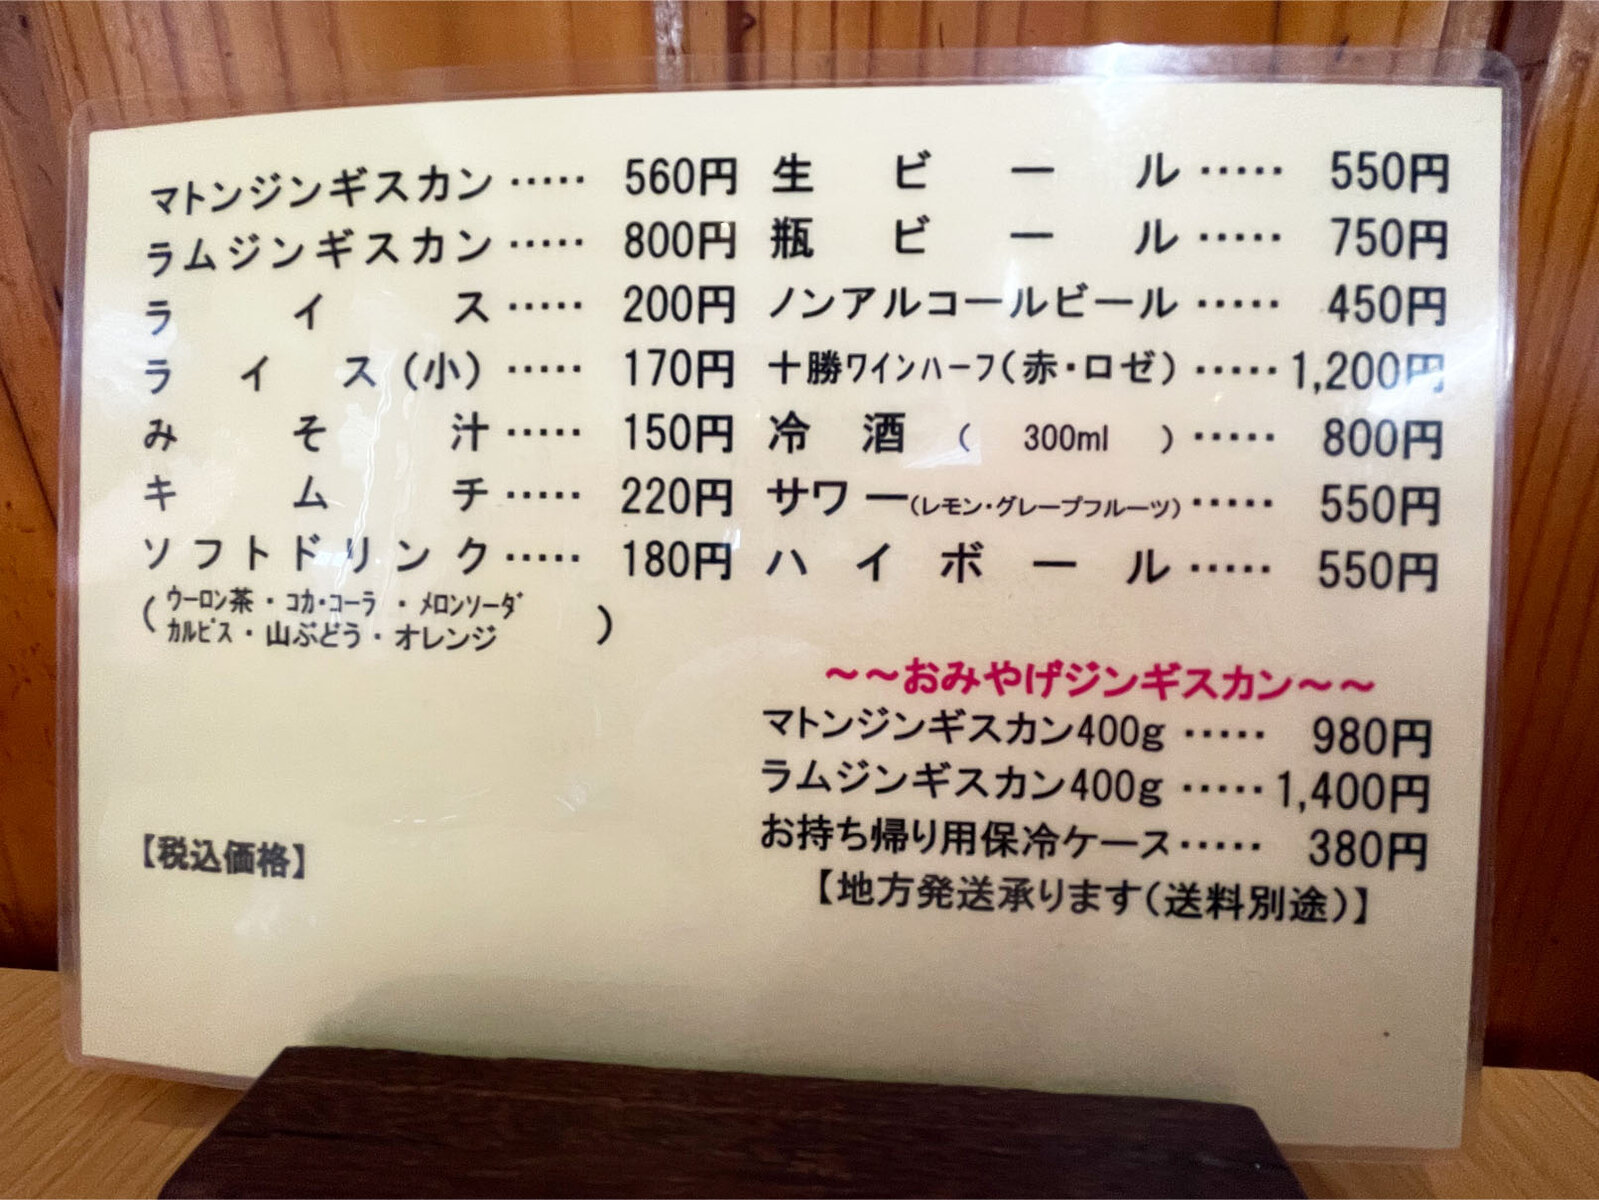 マトンジンギスカン‥‥‥ 560円
ラムジンギスカン‥‥‥ 800円
ライス‥‥‥ 200円
ライス(小)‥‥‥ 170円
みそ汁‥‥‥ 150円
キムチ‥‥‥ 220円
ソフトドリンク‥‥‥ 180円
(ウーロン茶・コカ・コーラ・メロンソーダ
カルピス・山ぶどう・オレンジ)
【税込価格】
生ビール‥‥‥ 550円
瓶ビール‥‥‥ 750円
ノンアルコールビール‥‥‥ 450円
十勝ワインハーフ(赤・ロゼ)‥‥‥1,200円
冷酒(300ml)‥‥‥ 800円
サワー(レモン・グレープフルーツ)‥‥‥ 550円
ハイボール‥‥‥ 550円
~~おみやげジンギスカン~~
マトンジンギスカン400g‥‥‥ 980円
ラムジンギスカン400g‥‥‥1,400円
お持ち帰り用保冷ケース‥‥‥ 380円
【地方発送承ります(送料別途)】